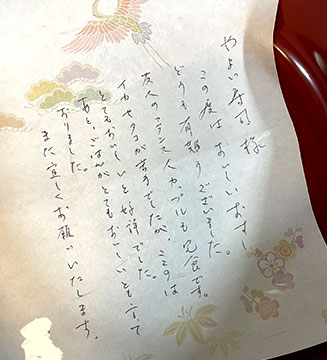 やよい寿司 様
この度は おいしいおすし
どうも有難うございました。
友人のフランス人カップルも完食です。
イカやタコが苦手でしたが、ここのは
とてもおいしいと好評でした。
あと、ごはんがとてもおいしいとも言って
おりました。
また宜しくお願いいたします。